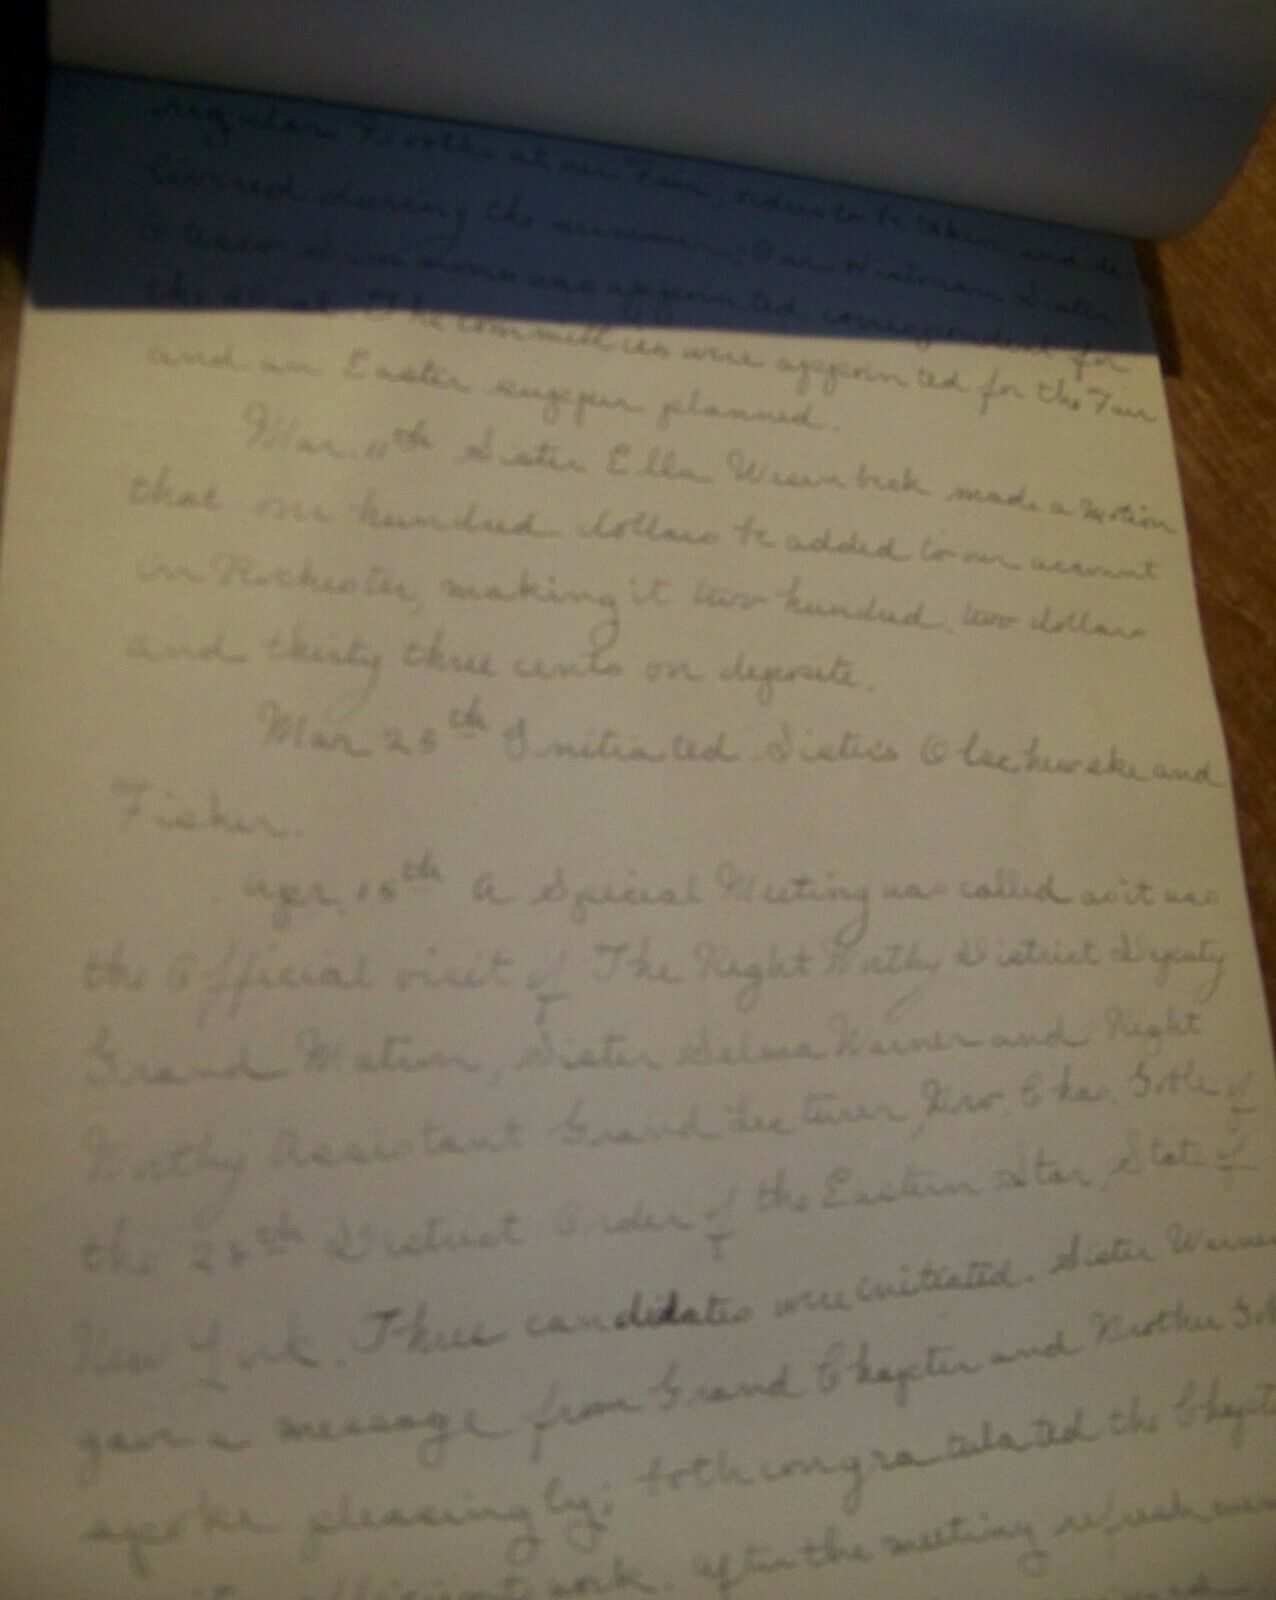 regular Booths at our Fair, orders to be taken and de
livered during the summer; Our Historian Sister
Simmons was appointed correspondent for
the The committies were appointed for the Fair
and an Easter supper planned.
Mar. 11th Sister Ella Wesenbeck made a motion
that one hundred dollars be added to our account
in Rochester, making it two hundred two dollars
and thirty three cents on deposite.
Mar 25th Initiated Sisters Olschewske and
Fisher.
Apr. 15th A Special Meeting was called as it was
the Official visit of The Right Wothy District Deputy
Grand Matron, Sister Selma Warner and Right
Wothy Assistant Grand Lecturer Bro. Chas. Goble of
the 28th District Order of the Eastern Star, State of
New York. Three candidates were initiated. Sister Warner
gave a message from Grand Chapter and Brother
spoke pleasingly; both congratulated the
work. After the meeting